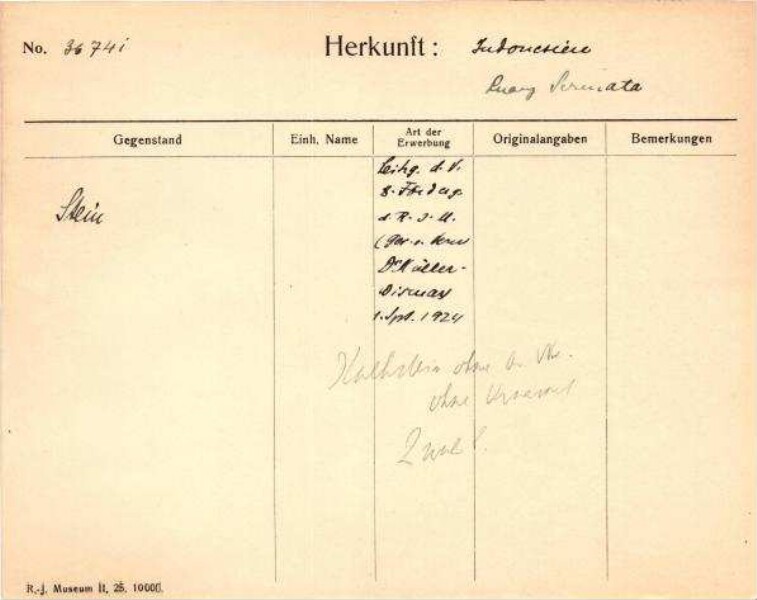 No. 36741 Herkunft: Indonesien
Luang Sermata
Gegenstand Einh. Name Art der Erwerbung Originalangaben Bemerkungen
Stein
Leihg. d. V.
z. Förderg.
d. R. J. M.
Dr Müller-
Wismar
1. Spt. 1924
Kalkstein ohne
ohne
R.-J. Museum II, 25. 10000.